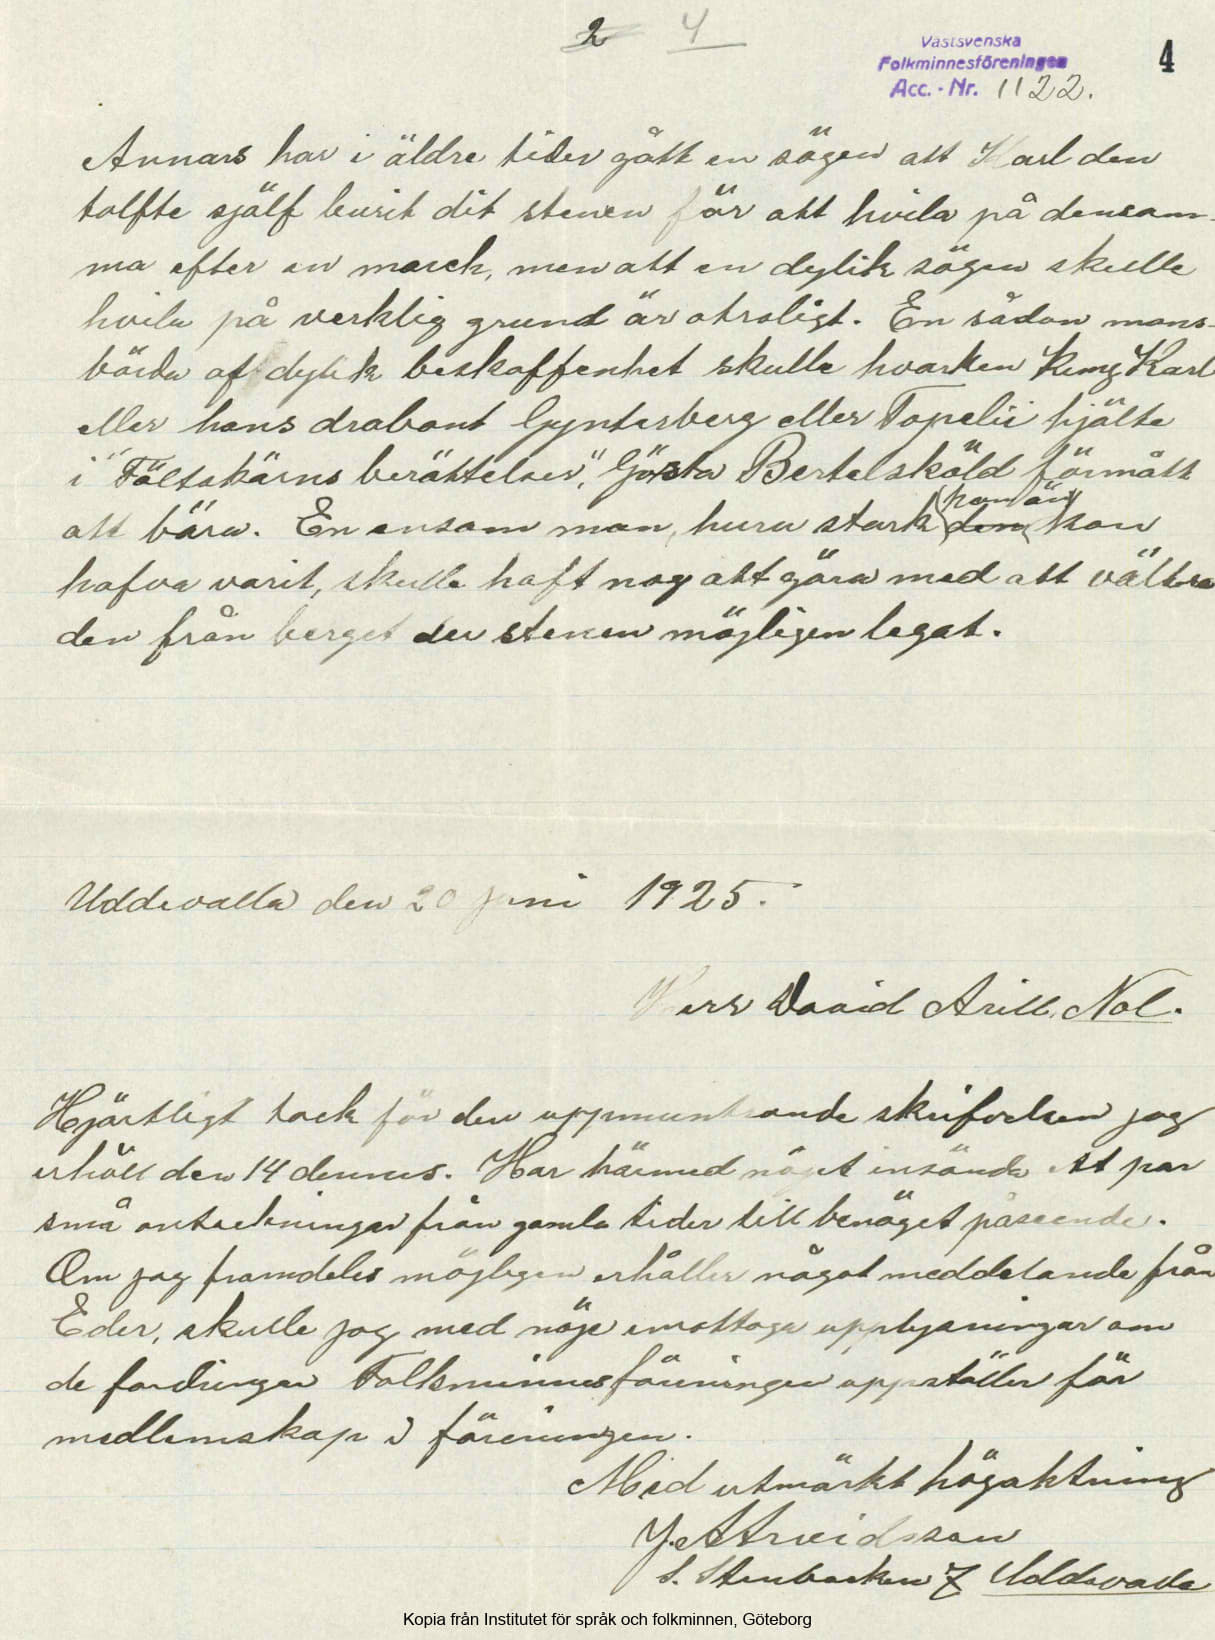 2 4
Västsvenska
Folkminnesföreningen
Acc. - Nr. 1122.
4
Annars har i äldre tider gått en sägen att Karl den
tolfte själf burit dit stenen för att hvila på densam-
ma efter en march, men att en dylik sägen skulle
hvila på verklig grund är otroligt. En sådan mans-
börda af dylik beskaffenhet skulle hvarken kung Karl
eller hans drabant Gynterberg eller Topelii hjälte
i "Fältskärns berättelser", Gösta Bertelsköld förmått
att bära. En ensam man, huru stark den han än kan
hafva varit, skulle haft nog att göra med att vältra
den från berget der stenen möjligen legat.
Uddevalla den 20 juni 1925.
Herr David Arill, Nol.
Hjärtligt tack för den uppmuntrande skrifvelsen jag
erhöll den 14 dennes. Har härmed nöjet insända ett par
små anteckningar från gamla tider till benäget påseende.
Om jag framdeles möjligen erhåller något meddelande från
Eder, skulle jag med nöje emottaga upplysningar om
de fordringar Folkminnesföreningen uppställer för
medlemskap i föreningen.
Med utmärkt högaktning
J. A Arvidsson
S. Stenbacken 7 Uddevalla
Kopia från Institutet för språk och folkminnen, Göteborg